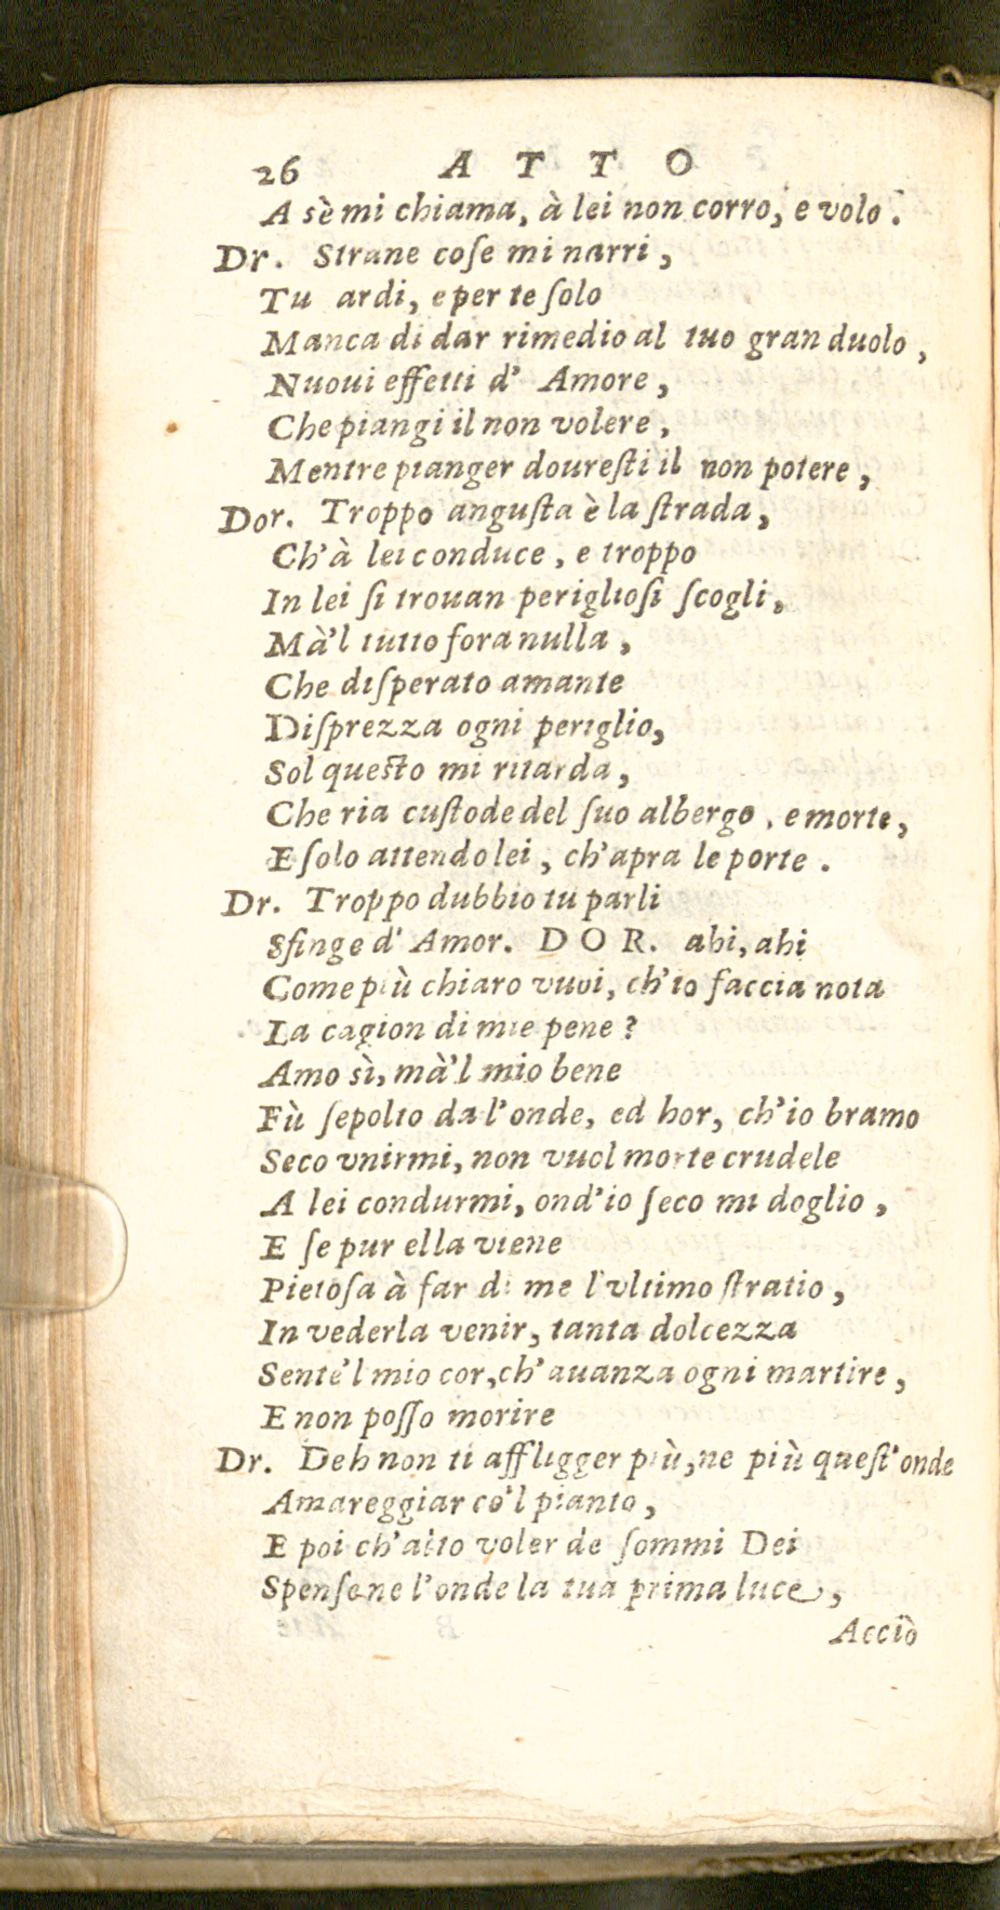 26 A T T O
A sè mi chiama, à lei non corro, e volo.
Dr. Strane coſe mi narri,
Tu ardi, e per te ſolo
Manca di dar rimedio al tuo gran duolo,
Nuoui effetti d' Amore,
Che piangi il non volere,
Mentre pianger doureſti il non potere,
Dor. Troppo anguſta è la ſtrada,
Ch'à lei conduce, e troppo
In lei ſi trouan periglioſi ſcogli,
Mà'l tutto fora nulla,
Che diſperato amante
Diſprezza ogni periglio,
Sol queſto mi ritarda,
Che ria cuſtode del ſuo albergo, e morte,
E ſolo attendo lei, ch'apra le porte.
Dr. Troppo dubbio tu parli
Sfinge d' Amor. D O R. ahi, ahi
Come più chiaro vuoi, ch'io faccia nota
La cagion di mie pene?
Amo sì, mà'l mio bene
Fù ſepolto da l'onde, ed hor, ch'io bramo
Seco vnirmi, non vuol morte crudele
A lei condurmi, ond'io ſeco mi doglio,
E ſe pur ella viene
Pietoſa à far di me l'vltimo ſtratio,
In vederla venir, tanta dolcezza
Sente'l mio cor, ch'auanza ogni martire,
E non poſſo morire
Dr. Deh non ti affligger più, ne più queſt'onde
Amareggiar co'l pianto,
E poi ch'alto voler de ſommi Dei
Spenſe ne l'onde la tua prima luce,
Acciò